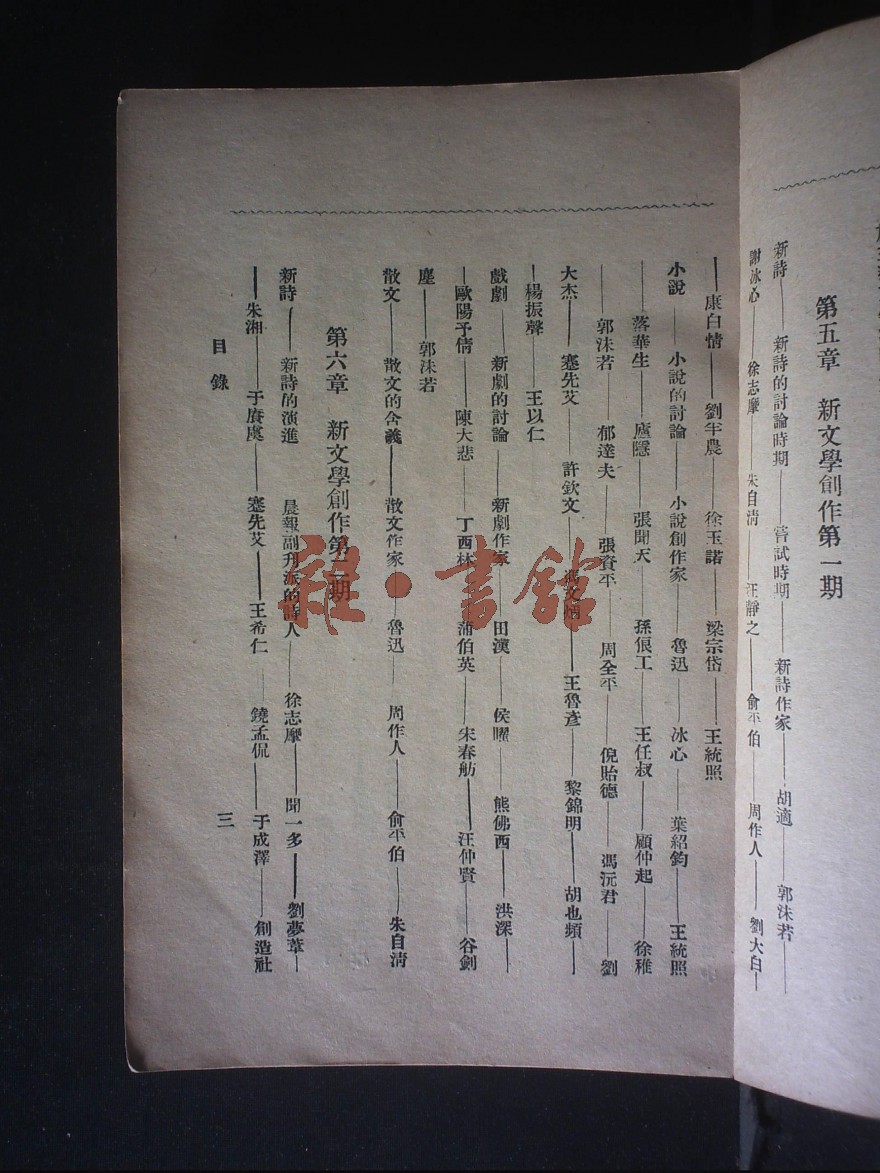 第五章　新文學創作第一期
新詩——新詩的討論時期——嘗試時期——新詩作家——胡適——郭沫若——
謝冰心——徐志摩——朱自清——汪靜之——俞平伯——周作人——劉大白—
——康白情——劉半農——徐玉諾——梁宗岱——王統照
小說——小說的討論——小說創作家——魯迅——冰心——葉紹鈞——王統照
——落華生——廬隱——張聞天——孫俍工——王任叔——顧仲起——徐稚
——郭沫若——郁達夫——張資平——周全平——倪貽德——馮沅君——劉
大杰——蹇先艾——許欽文——馮文炳——王魯彥——黎錦明——胡也頻——
——楊振聲——王以仁
戲劇——新劇的討論——新劇作家——田漢——侯曜——熊佛西——洪深——
——歐陽予倩——陳大悲——丁西林——蒲伯英——宋春舫——汪仲賢——谷劍
塵——郭沫若
散文——散文的含義——散文作家——魯迅——周作人——俞平伯——朱自清
第六章　新文學創作第二期
新詩——新詩的演進——晨報副刊派的詩人——徐志摩——聞一多——劉夢葦—
——朱湘——于賡虞——蹇先艾——王希仁——饒孟侃——于成澤——創造社
目錄
三
雜·書館